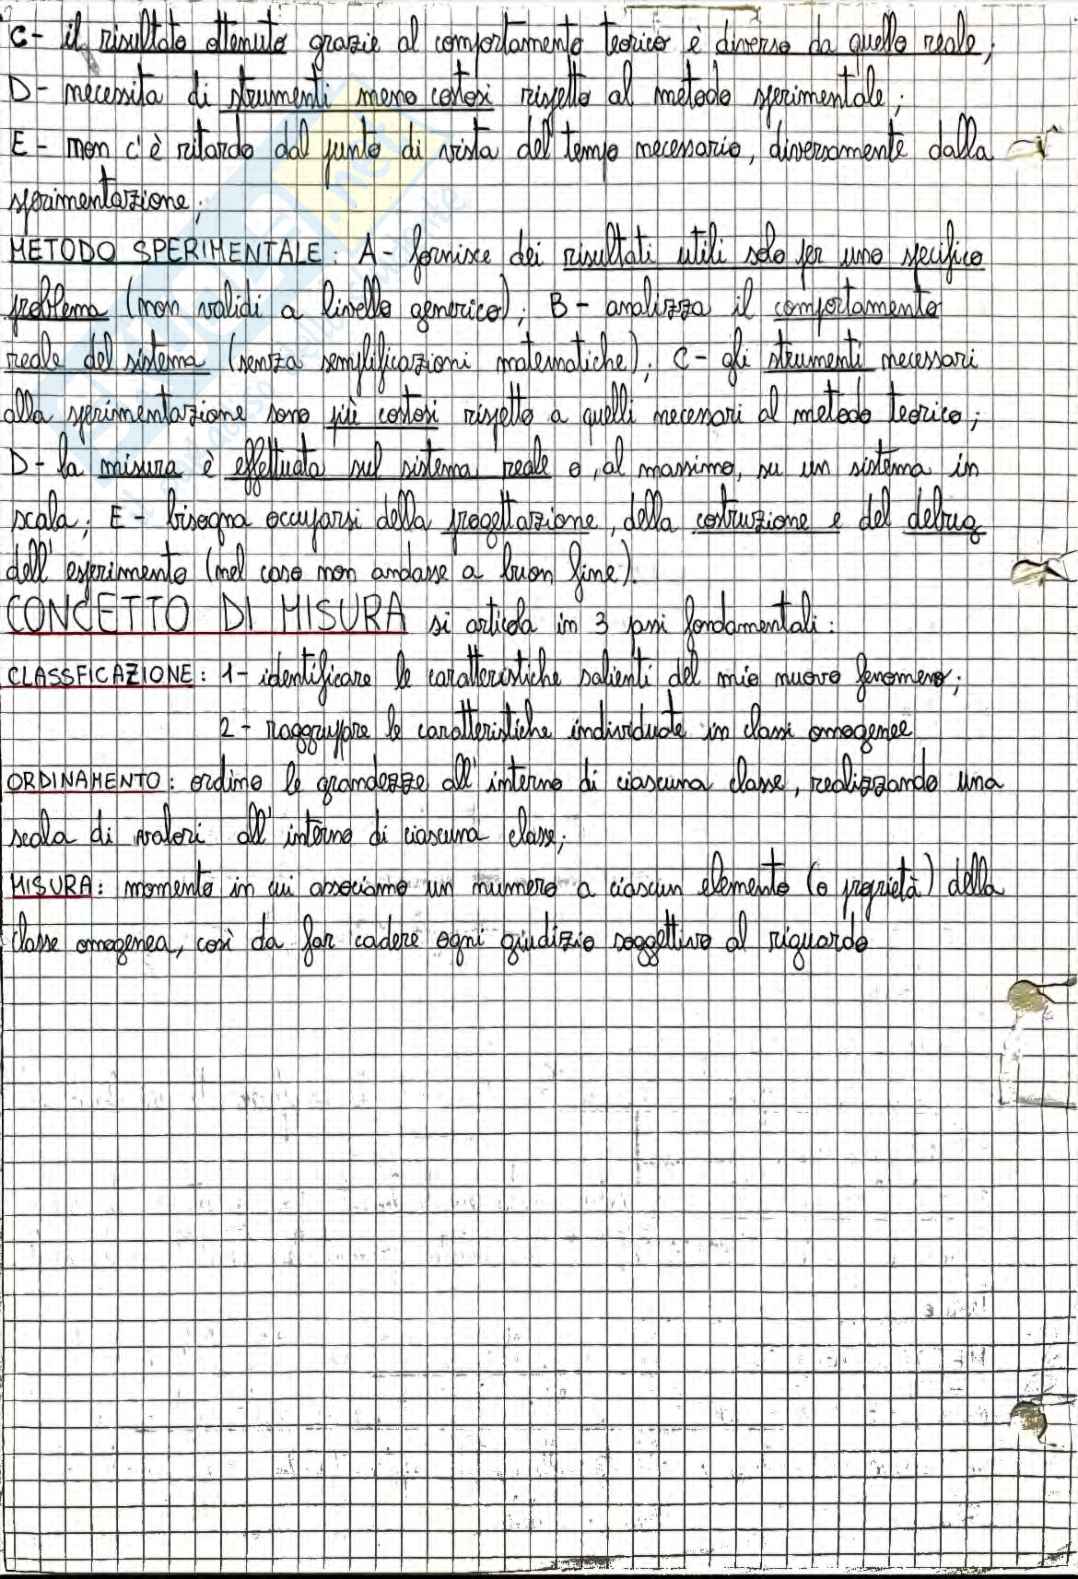 C- il risultato ottenuto grazie al comportamento teorico è diverso da quello reale;
D- necessita di strumenti meno costosi rispetto al metodo sperimentale;
E- non c'è ritardo dal punto di vista del tempo necessario, diversamente dalla
sperimentazione;
METODO SPERIMENTALE: A- fornisce dei risultati utili solo per uno specifico
problema (non validi a livello generico); B- analizza il comportamento
reale del sistema (senza semplificazioni matematiche); C- gli strumenti necessari
alla sperimentazione sono più costosi rispetto a quelli necessari al metodo teorico;
D- la misura è effettuata sul sistema reale o, al massimo, su un sistema in
scala; E- bisogna occuparsi della progettazione, della costruzione e del debug
dell'esperimento (nel caso non andasse a buon fine).
CONCETTO DI MISURA si articola in 3 passi fondamentali:
CLASSFICAZIONE: 1- identificare le caratteristiche salienti del mio nuovo fenomeno;
2- raggruppare le caratteristiche individuate in classi omogenee
ORDINAMENTO: ordino le grandezze all'interno di ciascuna classe, realizzando una
scala di valori all'interno di ciascuna classe;
MISURA: momento in cui associamo un numero a ciascun elemento (o proprietà) della
classe omogenea, così da far cadere ogni giudizio soggettivo al riguardo